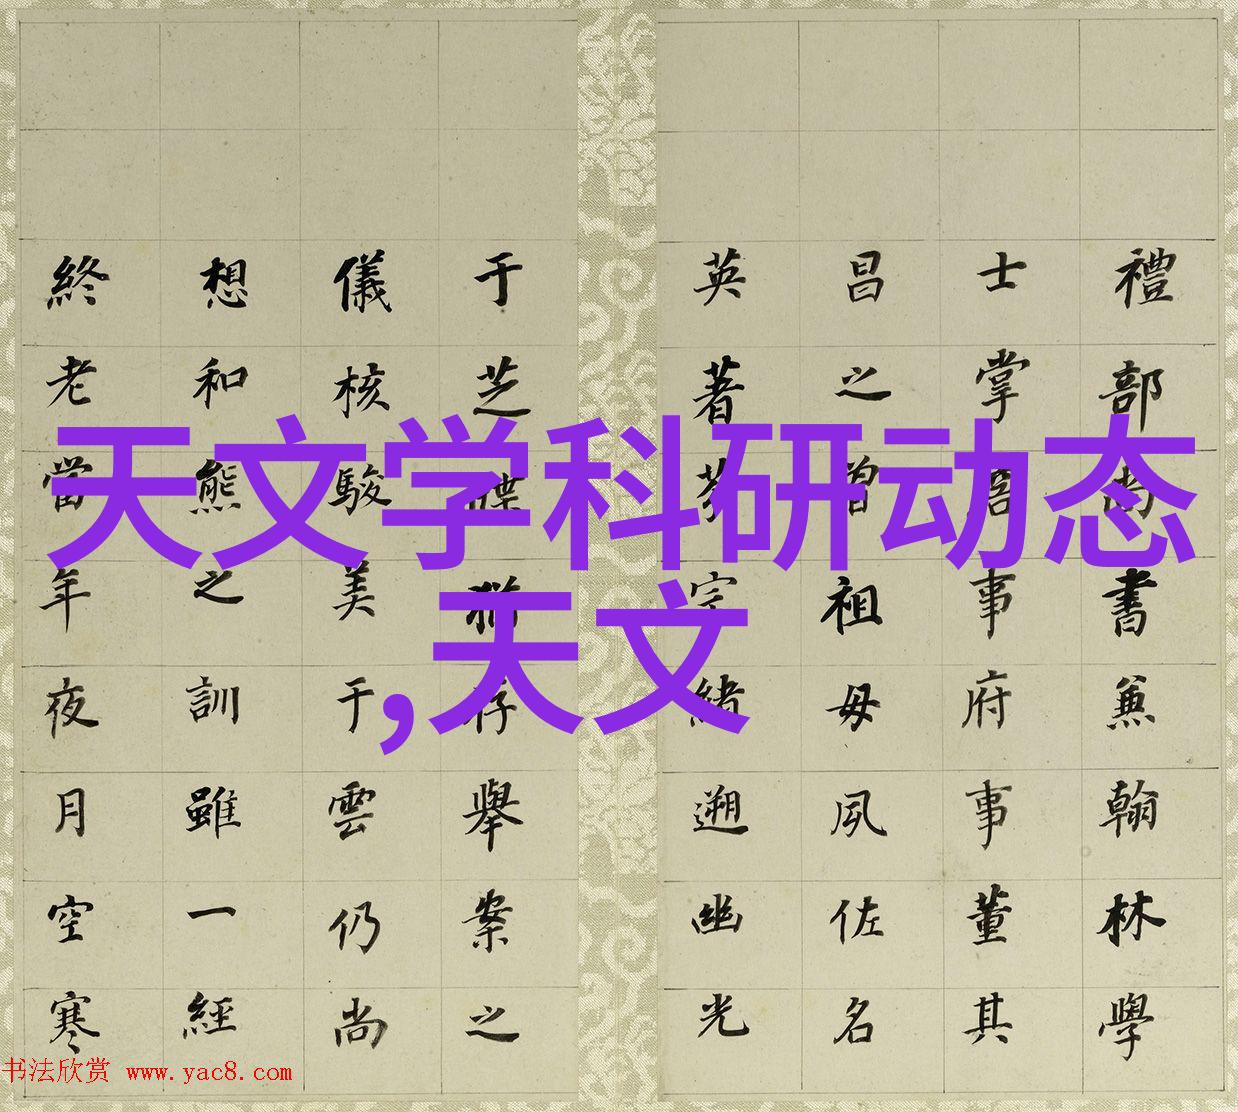 天文学科研动态
,天文
禮部尚書兼翰林學
士掌詹事府事董其
昌之曾祖母夙佐名
英著緒遡幽光
于芝牒存舉案之
儀核駿美于雲仍尚
想和熊之訓雖一經
終老當年夜月空寒
书法欣赏 www.yac8.com